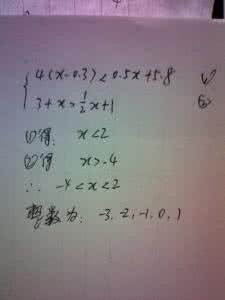 4(x-0.3)<0.5x+5.8 (1)
3+x>½x+1 (2)
(1)得: x<2
(2)得: x>-4
∴ -4<x<2
整数为: -3,-2,-1,0,1